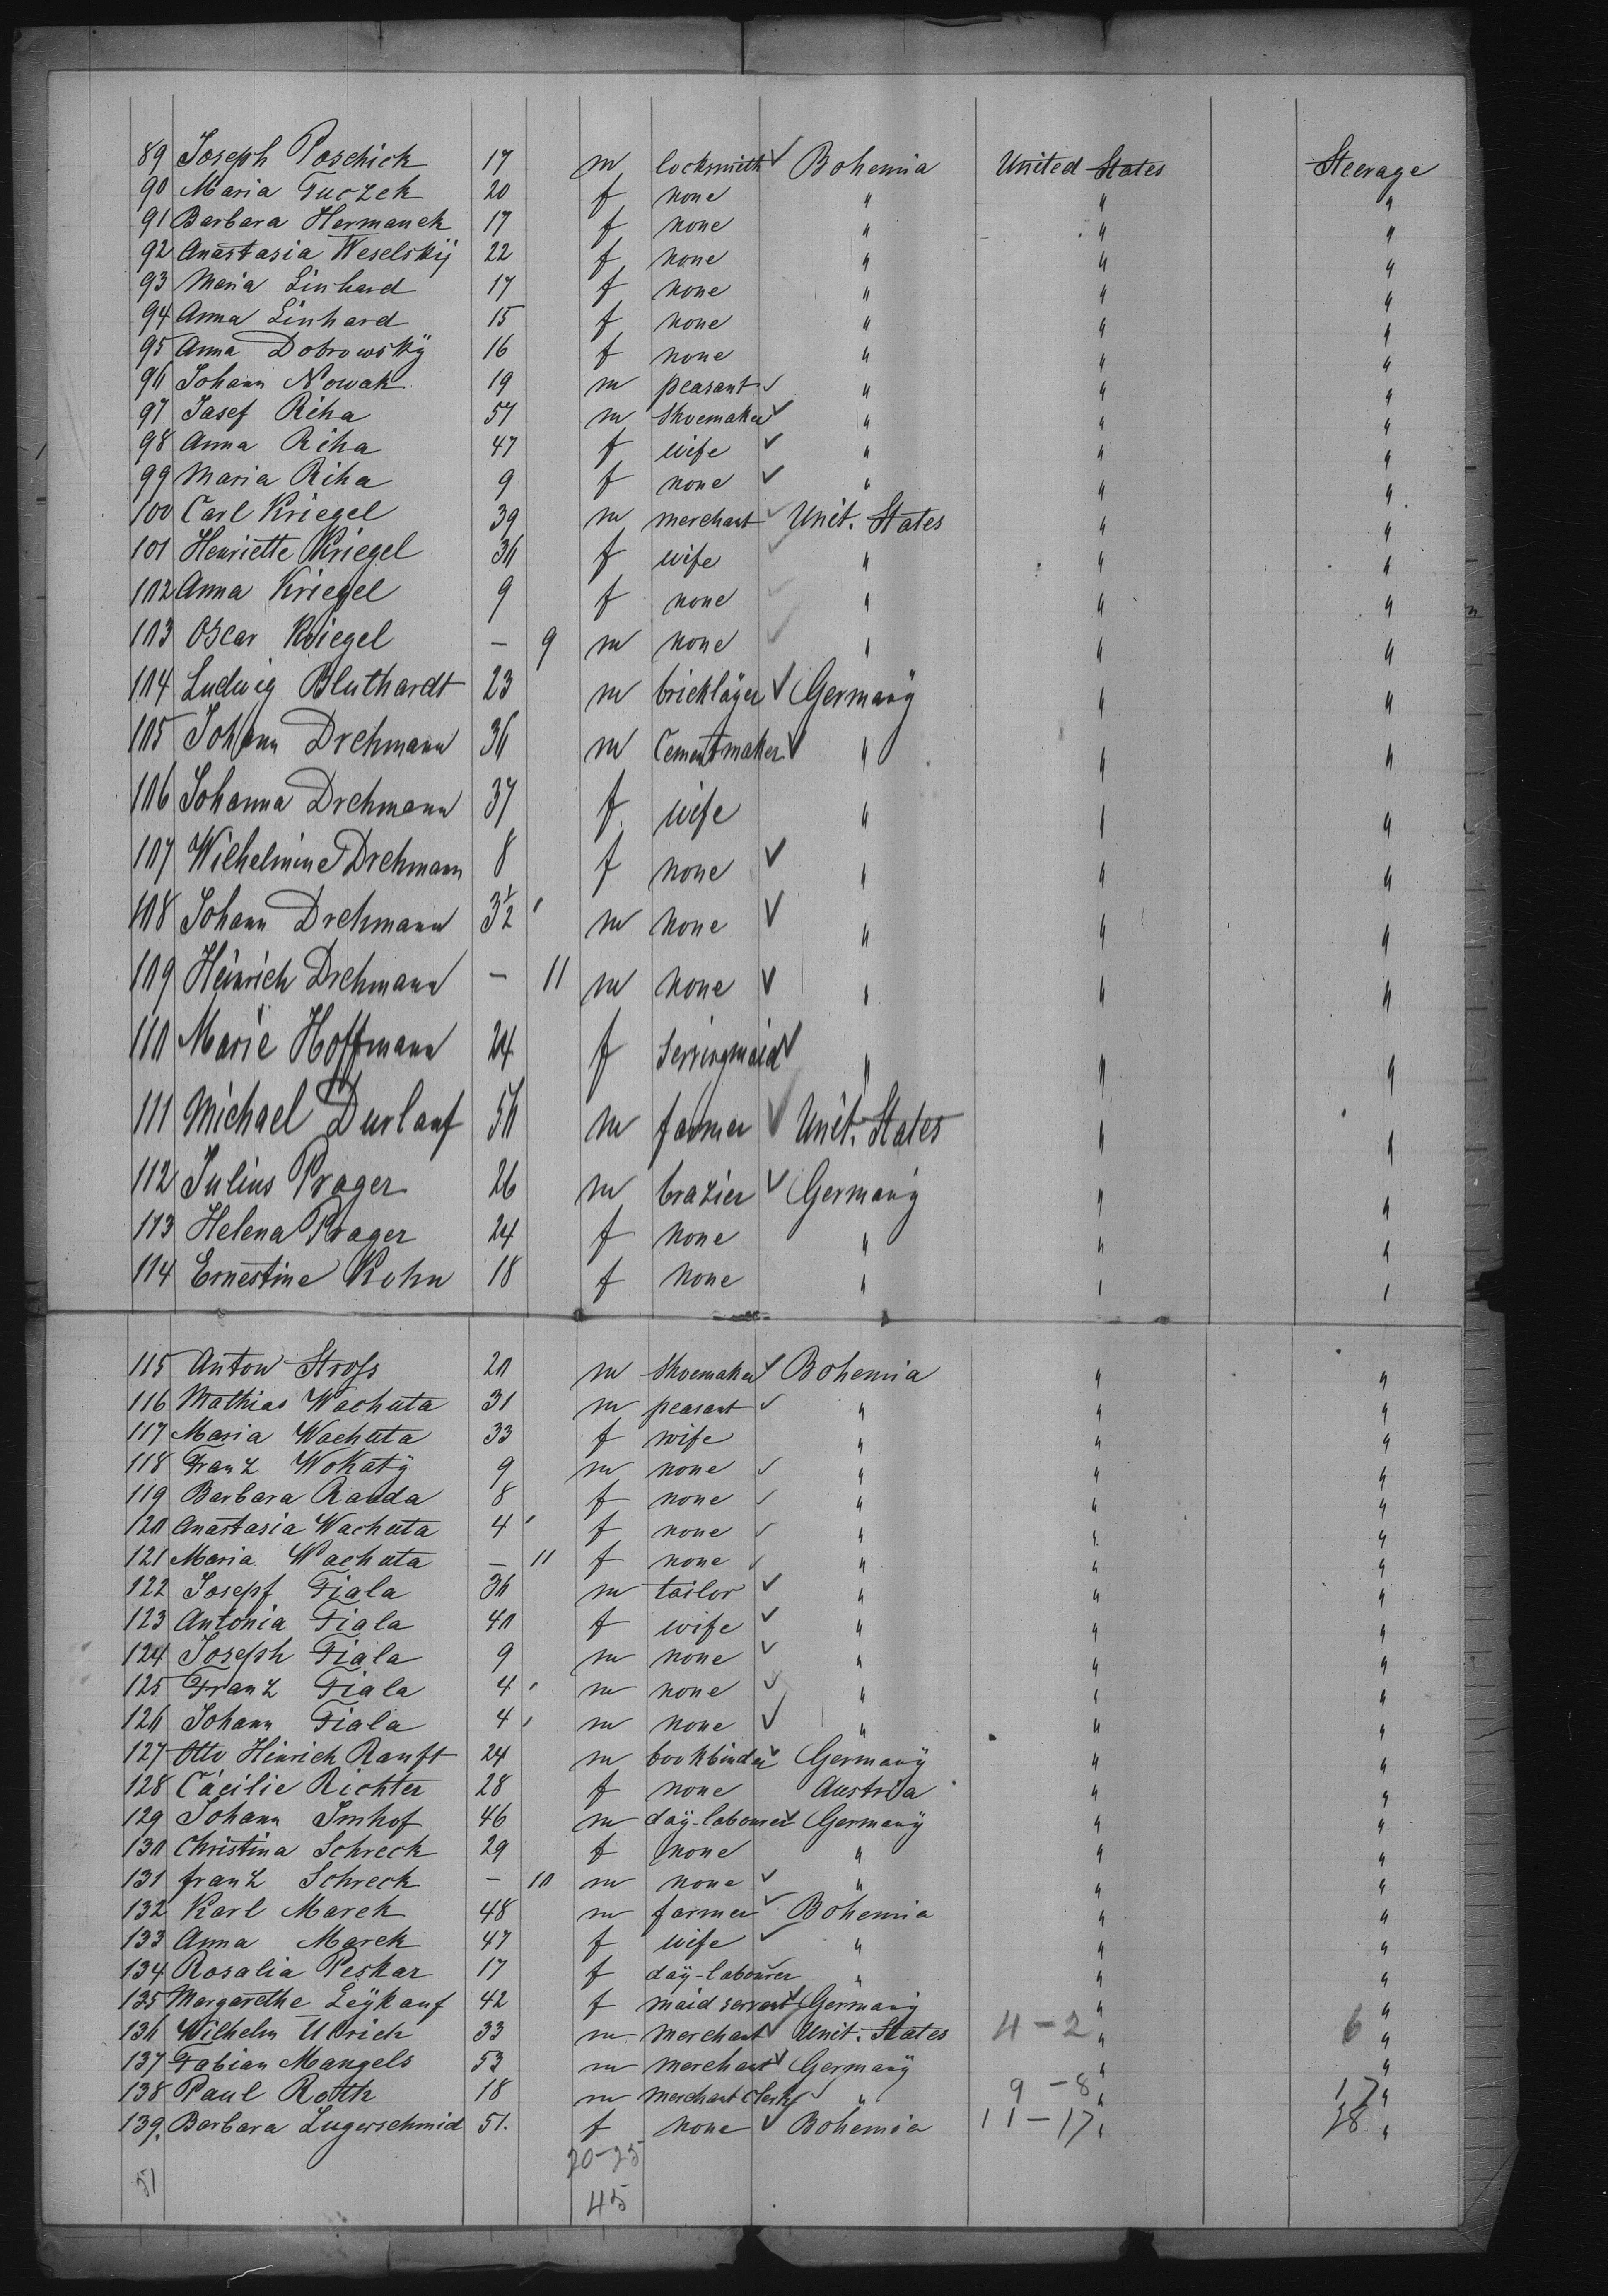 89 Joseph Poschick 17 m locksmith ✓ Bohemia United States Steerage
90 Maria Tuczek 20 f none " " "
91 Barbara Hermanek 17 f none " " "
92 Anastasia Weselskÿ 22 f none " " "
93 Maria Linhard 17 f none " " "
94 Anna Linhard 15 f none " " "
95 Anna Dobrowskÿ 16 f none " " "
96 Johann Nowak 19 m peasant ✓ " " "
97 Josef Riha 57 m Shoemaker ✓ " " "
98 Anna Riha 47 f wife ✓ " " "
99 Maria Riha 9 f none ✓ " " "
100 Carl Kriegel 39 m merchant ✓ Unit. States " "
101 Henriette Kriegel 36 f wife ✓ " " "
102 Anna Kriegel 9 f none ✓ " " "
103 Oscar Kriegel — 9 m none ✓ " " "
104 Ludwig Bluthardt 23 m bricklayer ✓ Germanÿ " "
105 Johann Drehmann 36 m Cementmaker ✓ " " "
106 Johanna Drehmann 37 f wife " " "
107 Wilhelmine Drehmann 8 f none ✓ " " "
108 Johann Drehmann 3½ m none ✓ " " "
109 Heinrich Drehmann — 11 m none ✓ " " "
110 Marie Hoffmann 24 f Servingmaid ✓ " " "
111 Michael Durlauf 56 m farmer ✓ Unit. States " "
112 Julius Prager 26 m brazier ✓ Germanÿ " "
113 Helena Prager 24 f none " " "
114 Ernestine Kohn 18 f none " " "
115 Anton Stroß 20 m Shoemaker ✓ Bohemia " "
116 Mathias Wachuta 31 m peasant ✓ " " "
117 Maria Wachuta 33 f wife " " "
118 Franz Wokatÿ 9 m none ✓ " " "
119 Barbara Rauda 8 f none ✓ " " "
120 Anastasia Wachuta 4 f none ✓ " " "
121 Maria Wachuta — 11 f none ✓ " " "
122 Josepf Fiala 36 m tailor ✓ " " "
123 Antonia Fiala 40 f wife ✓ " " "
124 Joseph Fiala 9 m none ✓ " " "
125 Franz Fiala 4 m none ✓ " " "
126 Johann Fiala 4 m none ✓ " " "
127 Otto Hinrich Ranft 24 m bookbinder ✓ Germanÿ " "
128 Cäcilie Richter 28 f none Austria " "
129 Johann Imhof 46 m daÿ-labourer ✓ Germanÿ " "
130 Christina Schreck 29 f none " " "
131 franz Schreck — 10 m none ✓ " " "
132 Karl Marek 48 m farmer ✓ Bohemia " "
133 Anna Marek 47 f wife ✓ " " "
134 Rosalia Peskar 17 f daÿ-labourer " " "
135 Margarethe Leÿkauf 42 f maid servant ✓ Germanÿ " "
136 Wilhelm Ullrich 33 m Merchant ✓ Unit. States 4-2 " 6 "
137 Fabian Mangels 53 m merchant ✓ Germanÿ " "
138 Paul Roth 18 m Merchant Clerk ✓ " 9-8 " 17 "
139. Barbara Lugerschmid 51. f none ✓ Bohemia 11-17 " 28 "
51 20-25
45